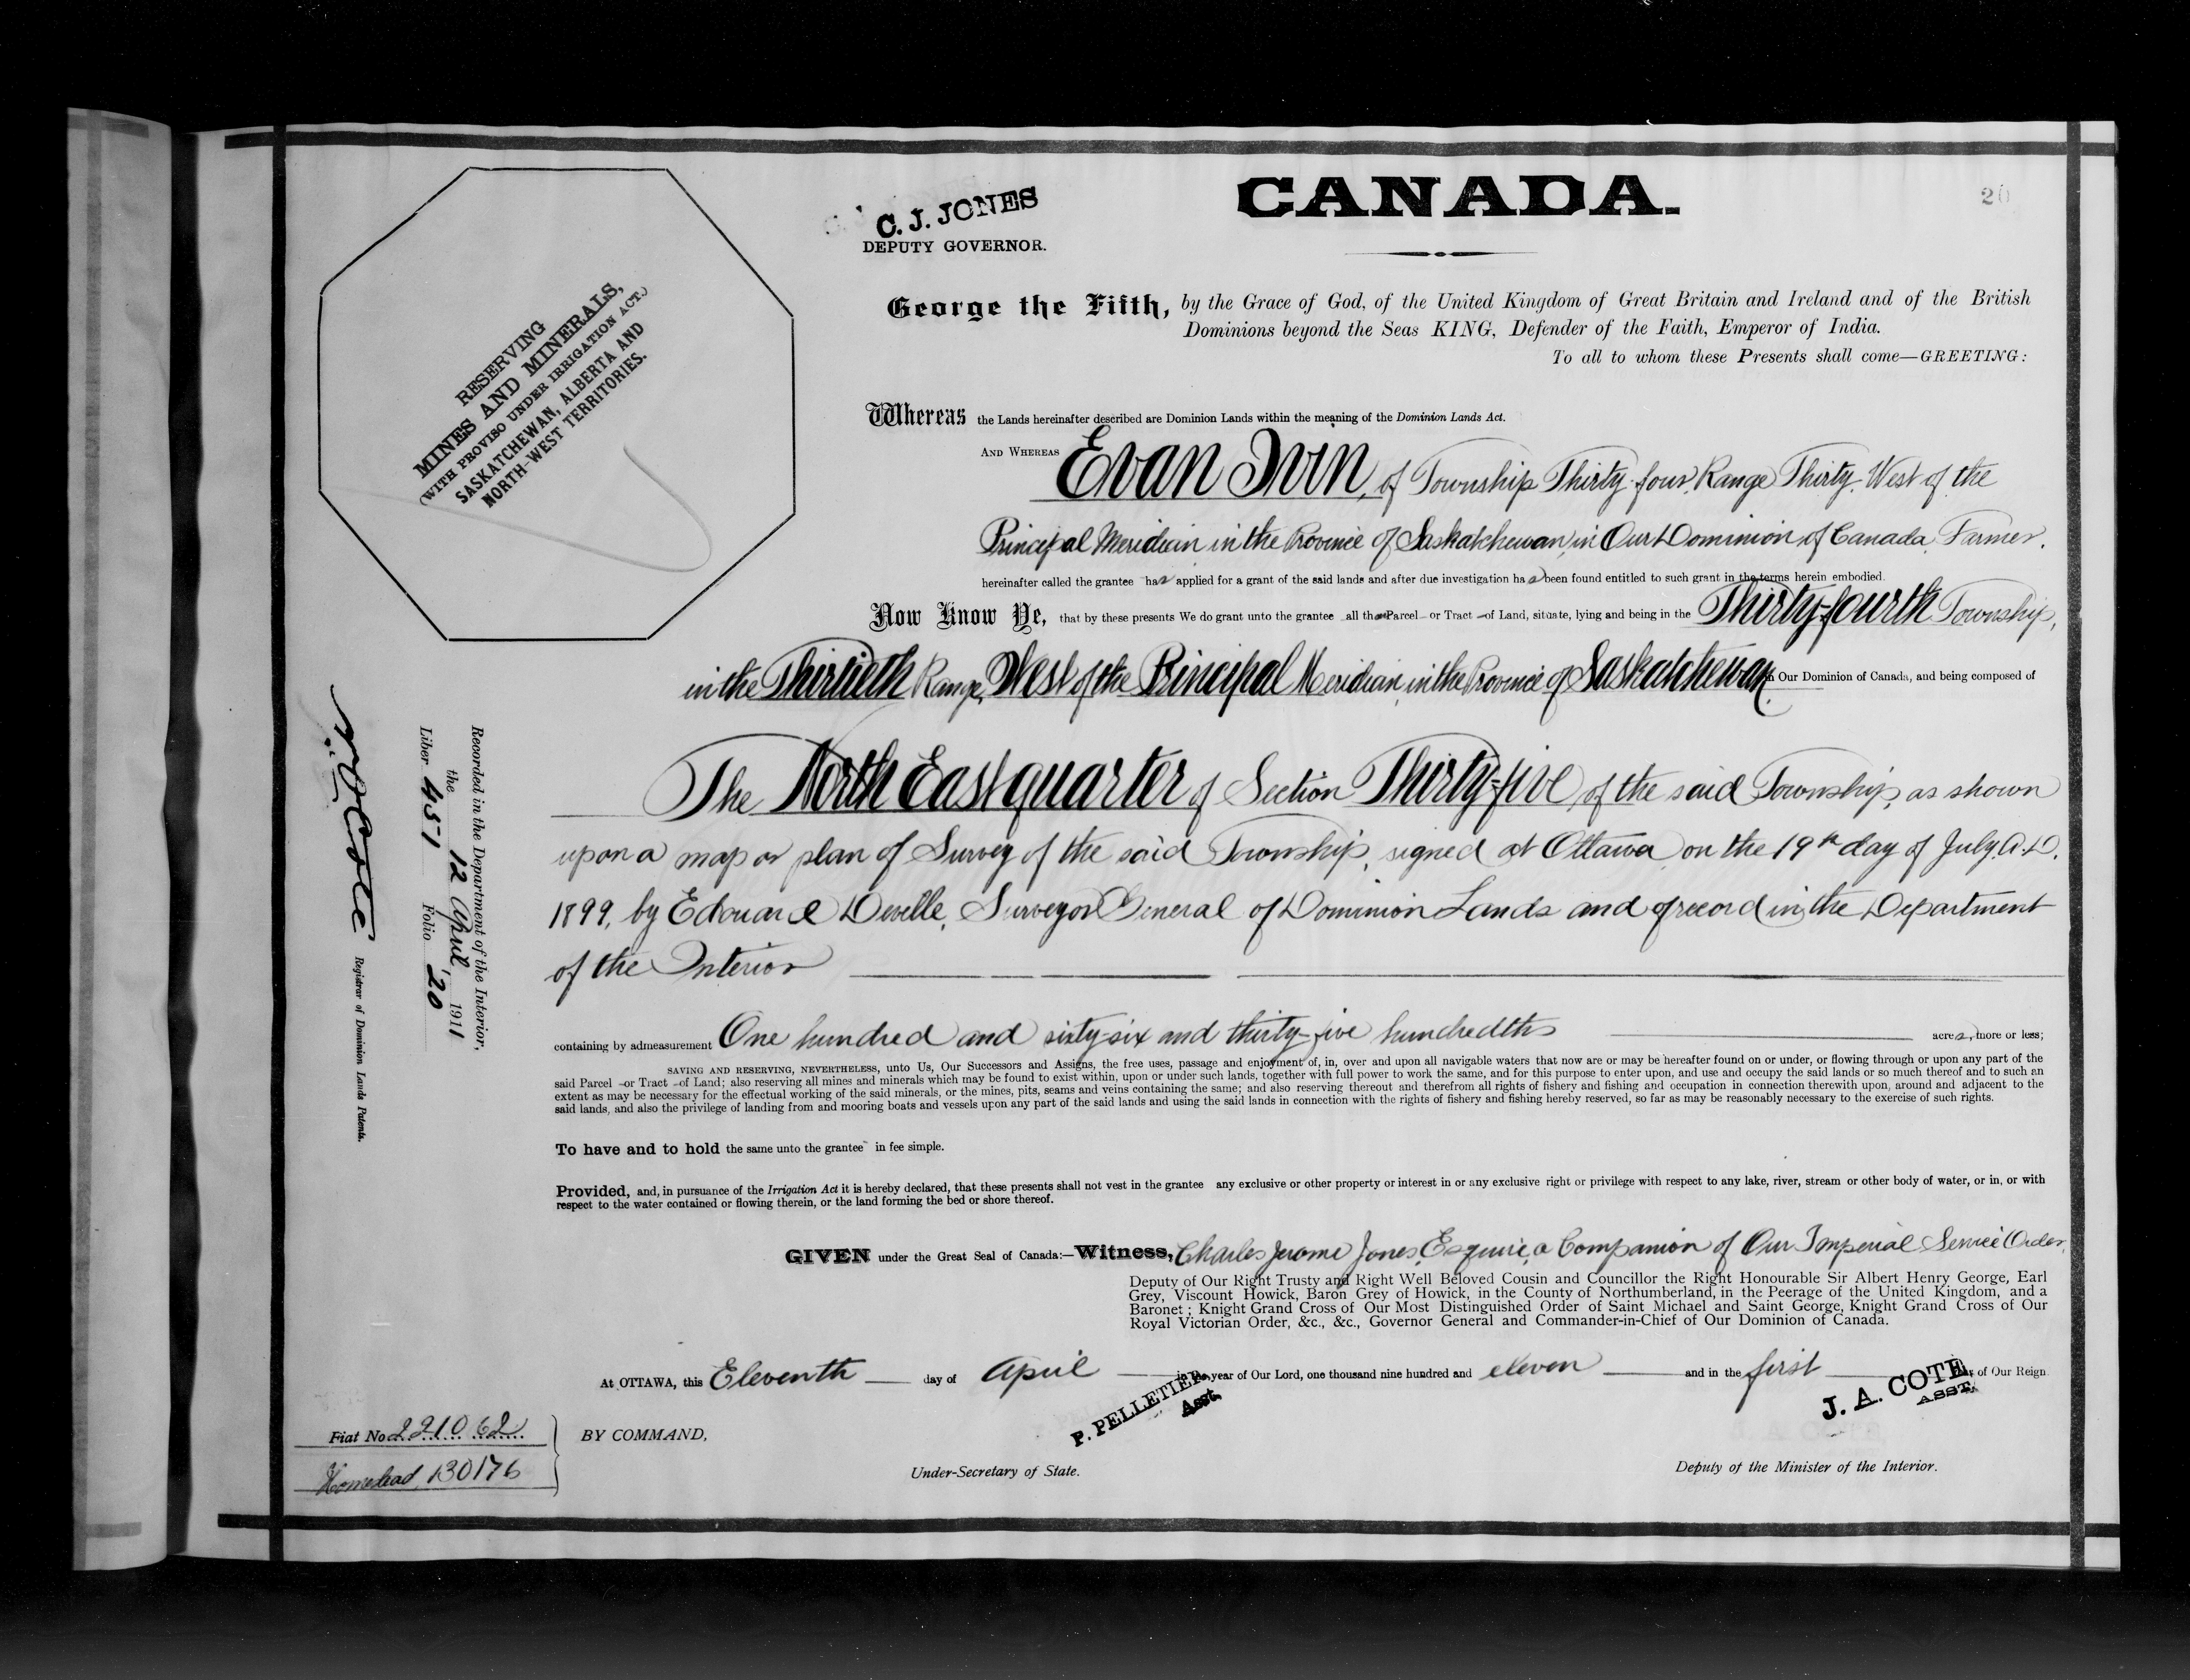 CANADA.
20
C. J. JONES
DEPUTY GOVERNOR.
RESERVING
MINES AND MINERALS,
(WITH PROVISO UNDER IRRIGATION ACT.)
SASKATCHEWAN, ALBERTA AND
NORTH-WEST TERRITORIES.
George the Fifth, by the Grace of God, of the United Kingdom of Great Britain and Ireland and of the British
Dominions beyond the Seas KING, Defender of the Faith, Emperor of India.
To all to whom these Presents shall come—GREETING:
Whereas the Lands hereinafter described are Dominion Lands within the meaning of the Dominion Lands Act.
AND WHEREAS Evan Ivin, of Township Thirty-four, Range Thirty, West of the
Principal Meridian in the Province of Saskatchewan, in Our Dominion of Canada, Farmer,
hereinafter called the grantee has applied for a grant of the said lands and after due investigation has been found entitled to such grant in the terms herein embodied.
Now Know Ye, that by these presents We do grant unto the grantee all that Parcel or Tract of Land, situate, lying and being in the Thirty-fourth Township,
in the Thirtieth Range, West of the Principal Meridian, in the Province of Saskatchewan, in Our Dominion of Canada, and being composed of
The North East quarter of Section Thirty-five, of the said Township, as shown
upon a map or plan of Survey of the said Township, signed at Ottawa, on the 19th day of July, A.D.
1899, by Edouard Deville, Surveyor General of Dominion Lands and of record in the Department
of the Interior
containing by admeasurement One hundred and sixty-six and thirty-five hundredths acres, more or less;
SAVING AND RESERVING, NEVERTHELESS, unto Us, Our Successors and Assigns, the free uses, passage and enjoyment of, in, over and upon all navigable waters that now are or may be hereafter found on or under, or flowing through or upon any part of the
said Parcel or Tract of Land; also reserving all mines and minerals which may be found to exist within, upon or under such lands, together with full power to work the same, and for this purpose to enter upon, and use and occupy the said lands or so much thereof and to such an
extent as may be necessary for the effectual working of the said minerals, or the mines, pits, seams and veins containing the same; and also reserving thereout and therefrom all rights of fishery and fishing and occupation in connection therewith upon, around and adjacent to the
said lands, and also the privilege of landing from and mooring boats and vessels upon any part of the said lands and using the said lands in connection with the rights of fishery and fishing hereby reserved, so far as may be reasonably necessary to the exercise of such rights.
To have and to hold the same unto the grantee in fee simple.
Provided, and, in pursuance of the Irrigation Act it is hereby declared, that these presents shall not vest in the grantee any exclusive or other property or interest in or any exclusive right or privilege with respect to any lake, river, stream or other body of water, or in, or with
respect to the water contained or flowing therein, or the land forming the bed or shore thereof.
GIVEN under the Great Seal of Canada:—Witness, Charles Jerome Jones, Esquire, a Companion of Our Imperial Service Order,
Deputy of Our Right Trusty and Right Well Beloved Cousin and Councillor the Right Honourable Sir Albert Henry George, Earl
Grey, Viscount Howick, Baron Grey of Howick, in the County of Northumberland, in the Peerage of the United Kingdom, and a
Baronet; Knight Grand Cross of Our Most Distinguished Order of Saint Michael and Saint George, Knight Grand Cross of Our
Royal Victorian Order, &c., &c., Governor General and Commander-in-Chief of Our Dominion of Canada.
At OTTAWA, this Eleventh day of April in the year of Our Lord, one thousand nine hundred and eleven and in the first year of Our Reign
P. PELLETIER
Asst.
J. A. COTE
ASST.
BY COMMAND,
Under-Secretary of State.
Deputy of the Minister of the Interior.
Fiat No 221062
Homestead, 130176
Recorded in the Department of the Interior,
the 12 April, 1911
Liber 451 Folio 20
Cote Registrar of Dominion Lands Patents.